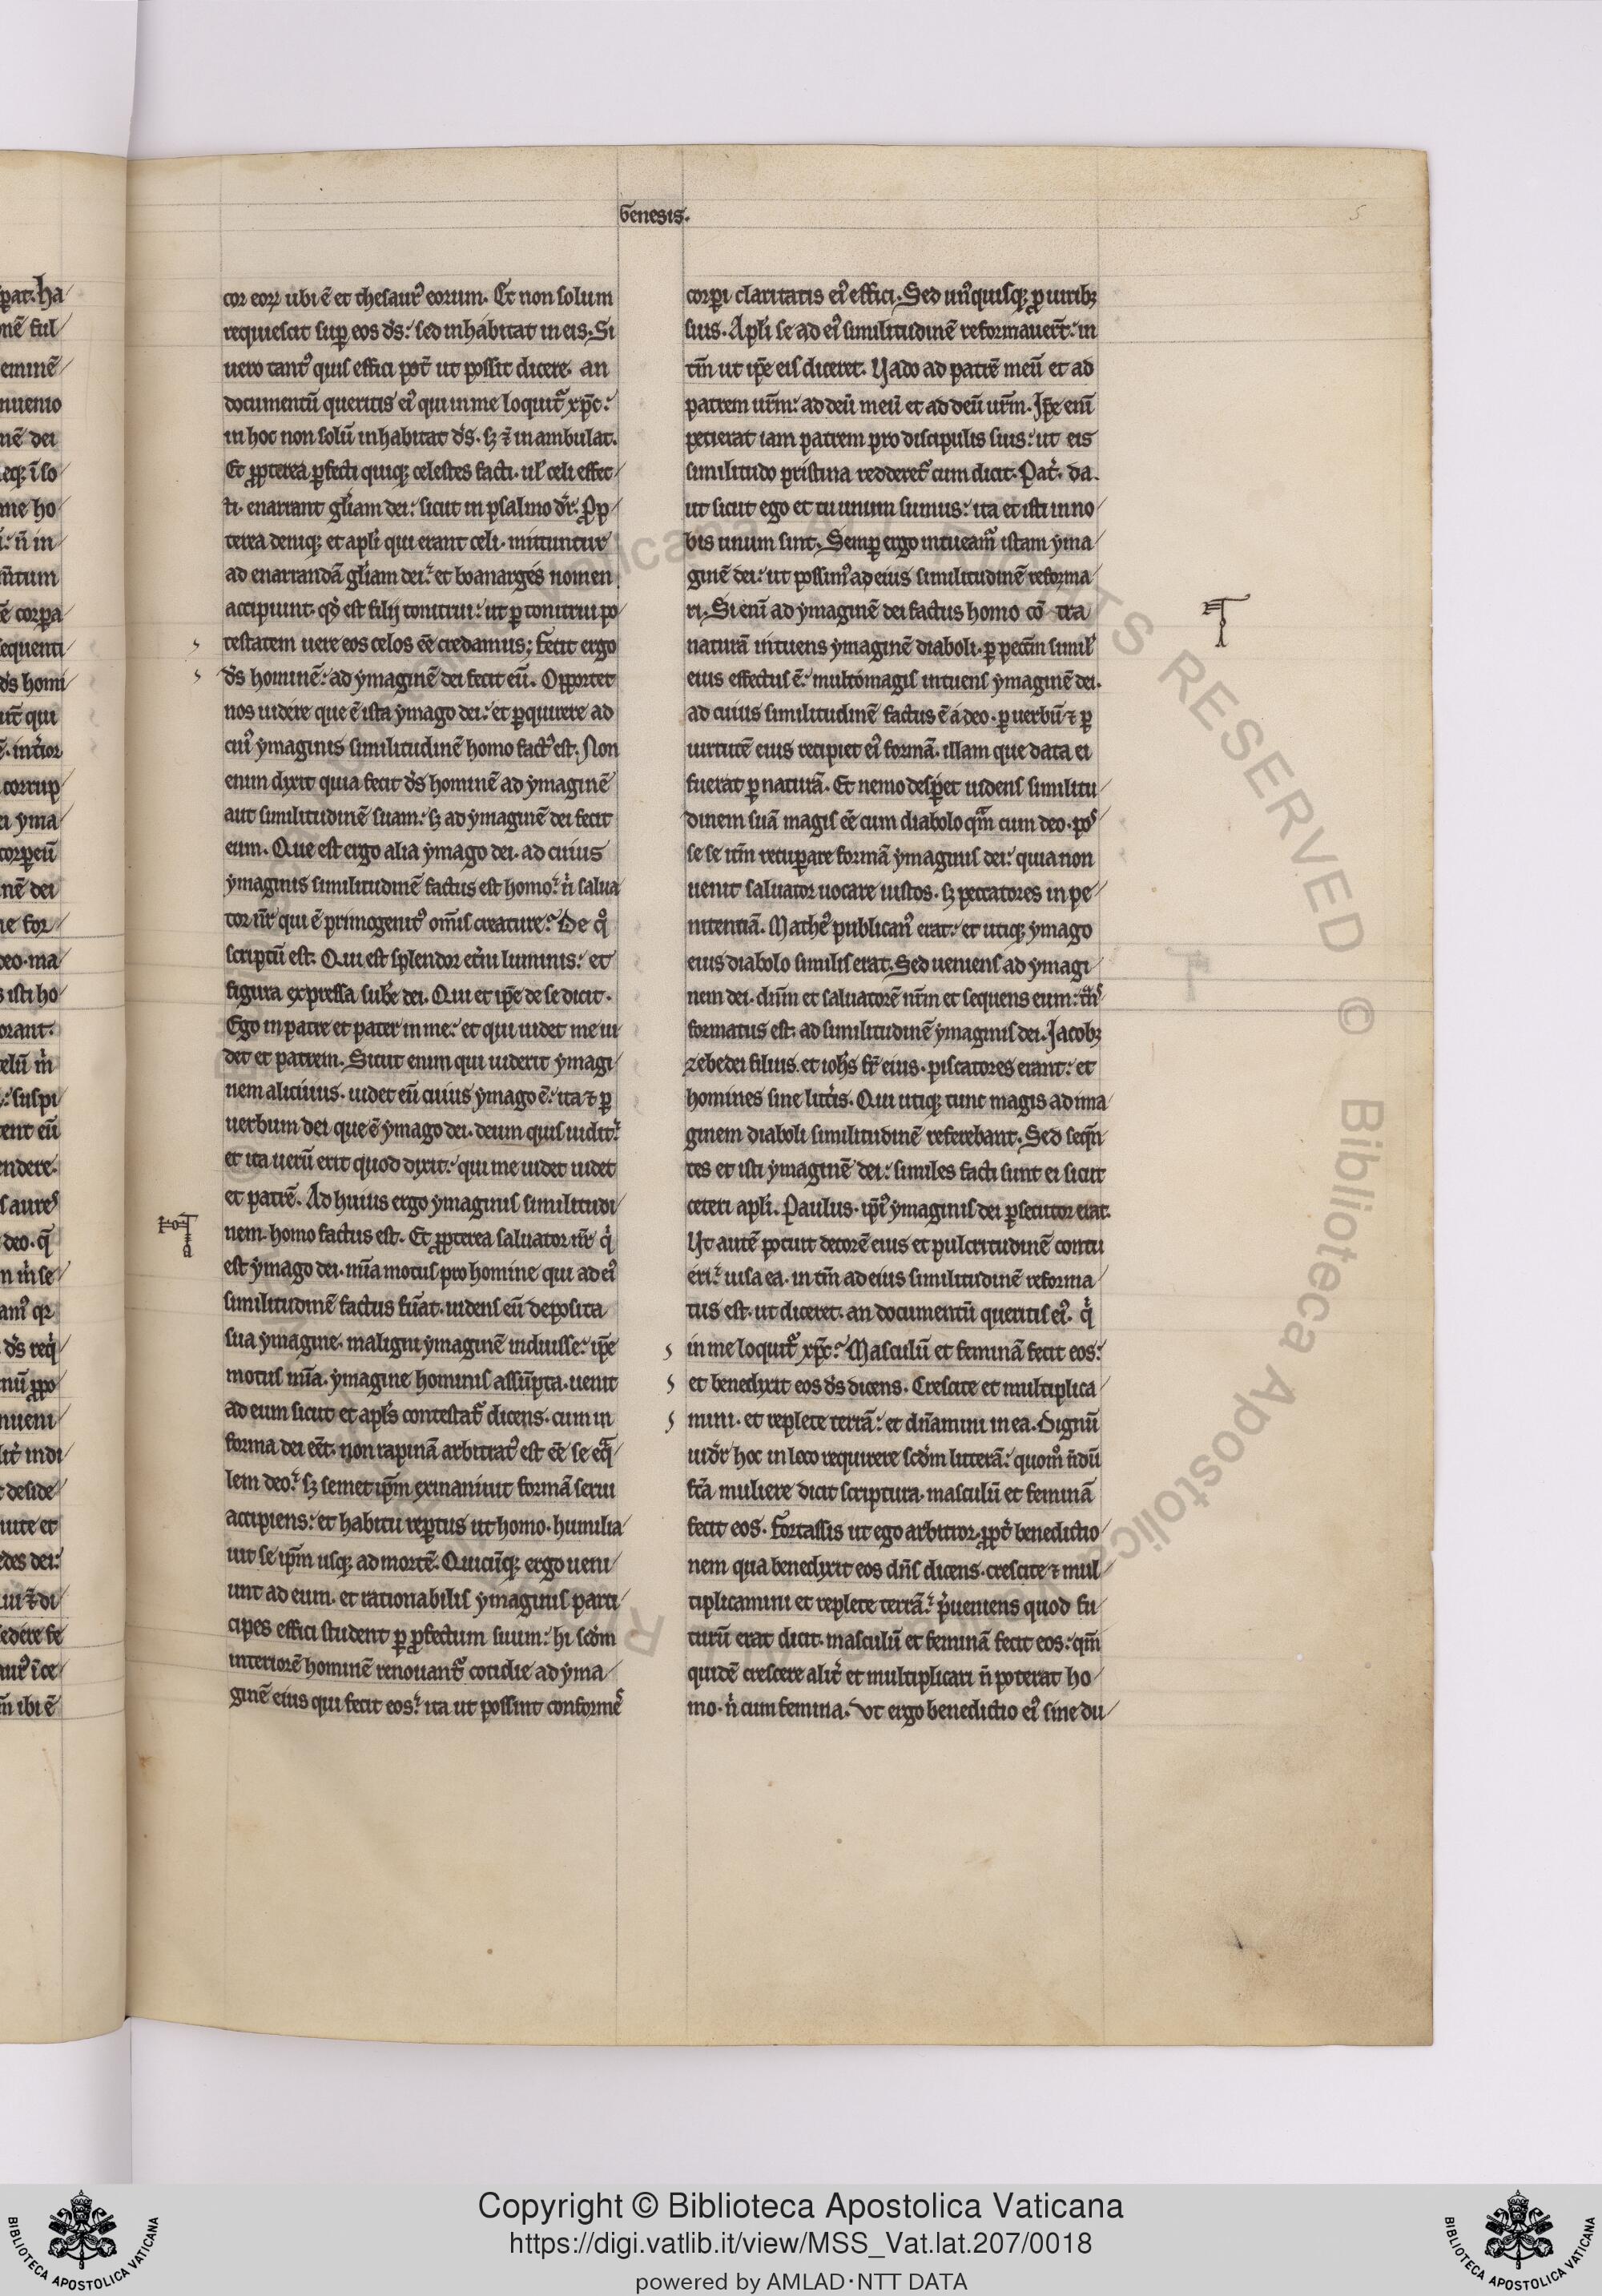 Genesis.
5
cor eoꝝ ubi ē et thesaurꝰ eorum. Et non solum
requiescit suꝑ eos dꝰs: sed inhabitat in eis. Si
uero tantꝰ quis effici pot̄ ut possit dicere. an
documentū queritis eiꝰ qui in me loquit᷑ xp̄c:
in hoc non solū inhabitat dꝰs. sꝫ ⁊ inambulat.
Et ꝓpterea ꝑfecti quiqꝫ celestes facti. ul̕ celi effec
ti. enarrant gl̕iam dei: sicut in psalmo dr̄. Ꝓp
terea deniqꝫ et apl̕i qui erant celi. mittuntur
ad enarrandā gl̕iam dei: et boanarges nomen
accipiunt. qd̕ est filij tonitrui: ut ꝑ tonitrui po
testatem uere eos celos eē credamus; fecit ergo
dꝰs hominē: ad ymaginē dei fecit eū. Oportet
nos uidere que ē ista ymago dei: et ꝑquirere ad
cuiꝰ ymaginis similitudinē homo factꝰ est. Non
enim dixit quia fecit dꝰs hominē ad ymaginē
aut similitudinē suam: sꝫ ad ymaginē dei fecit
eum. Que est ergo alia ymago dei. ad cuius
ymaginis similitudinē factus est homo: n̕ salua
tor nr̄ qui ē primogenitꝰ om̄is creature: De qͦ
scriptū est. Qui est splendor et̕ni luminis: et
figura expressa sub̕e dei. Qui et ip̄e de se dicit.
Ego in patre et pater in me: et qui uidet me ui
det et patrem. Sicut enim qui uiderit ymagi
nem alicuius. uidet eū cuius ymago ē: ita ⁊ ꝑ
uerbum dei que ē ymago dei. deum quis uidit:
et ita uerū erit quod dixit: qui me uidet uidet
et patrē. Ad huius ergo ymaginis similitudi
nem homo factus est. Et ꝓpterea saluator nr̄ qͥ
est ymago dei. mīa motus pro homine qui ad eiꝰ
similitudinē factus fūat. uidens eū deposita
sua ymagine. maligni ymaginē induisse: ip̄e
motus mīa. ymagine hominis assūpta. uenit
ad eum sicut et apl̕s contestat᷑ dicens. cum in
forma dei eēt. non rapinā arbitratꝰ est eē se eqͣ
lem deo: sꝫ semet ip̄m exinaniuit formā serui
accipiens: et habitu reꝑtus ut homo. humilia
uit se ip̄m usqꝫ ad mortē. Quicūqꝫ ergo ueni
unt ad eum. et rationabilis ymaginis parti
cipes effici student ꝑ ꝓfectum suum: hi scd̕m
interiorē hominē renouant᷑ cotidie ad yma
ginē eius qui fecit eos: ita ut possint conformēs
corꝑi claritatis eiꝰ effici. Sed unꝰquisqꝫ ꝓ uiribꝫ
suis. Apl̕i se ad eiꝰ similitudinē reformauer̄t: in
tm̄ ut ip̄e eis diceret. Vado ad patrē meū et ad
patrem ur̄m: ad deū meū et ad deū ur̄m. Ip̄e eni᷑
petierat iam patrem pro discipulis suis: ut eis
similitudo pristina redderet᷑ cum dicit. Pat̕. da
ut sicut ego et tu unum sumus: ita et isti in no
bis unum sint. Semꝑ ergo intueamꝰ istam yma
ginē dei: ut possimꝰ ad eius similitudinē reforma
ri. Si eni᷑ ad ymaginē dei factus homo cō tra
naturā intuens ymaginē diaboli. ꝑ pecc̄m simil̕
eius effectus ē: multomagis intuens ymaginē dei.
ad cuius similitudinē factus ē a deo. ꝑ uerbū ⁊ ꝑ
uirtutē eius recipiet eiꝰ formā. illam que data ei
fuerat ꝑ naturā. Et nemo desꝑet uidens similitu
dinem suā magis eē cum diabolo qm̄ cum deo. pos
se se itm̄ recuꝑare formā ymaginis dei: quia non
uenit saluator uocare iustos. sꝫ peccatores in pe
nitentiā. Matheꝰ publicanꝰ erat: et utiqꝫ ymago
eius diabolo similis erat. Sed ueniens ad ymagi
nem dei. dn̄m et saluatorē nr̄m et sequens eum: tn̄s
formatus est: ad similitudinē ymaginis dei. Jacobꝫ
zebedei filius. et ioh̕s fr̄ eius. piscatores erant: et
homines sine litt̕is. Qui utiqꝫ tunc magis ad ima
ginem diaboli similitudinē referebant. Sed seqn̄
tes et isti ymaginē dei: similes facti sunt ei sicut
ceteri apl̕i. Paulus. ip̄iꝰ ymaginis dei ꝑsecutor erat.
Ut autē potuit decorē eius et pulcritudinē contu
eri: uisa ea. in tm̄ ad eius similitudinē reforma
tus est. ut diceret. an documentū queritis eiꝰ. qͥ
in me loquit᷑ xp̄c: Masculū et feminā fecit eos:
et benedixit eos dꝰs dicens. Crescite et multiplica
mini. et replete terrā: et dn̄amini in ea. Dignū
uidr̄ hoc in loco requirere scd̕m litterā: quomͦ n̄dū
fc̄a muliere dicit scriptura. masculū et feminā
fecit eos. Fortassis ut ego arbitror. ꝓpt̕ benedictio
nem qua benedixit eos dn̄s dicens. crescite ⁊ mul
tiplicamini et replete terrā: p̕ueniens quod fu
turū erat dicit. masculū et feminā fecit eos: qm̄
quidē crescere alit̕ et multiplicari n̄ poterat ho
mo. n̕ cum femina. Vt ergo benedictio eiꝰ sine du
Copyright © Biblioteca Apostolica Vaticana
https://digi.vatlib.it/view/MSS_Vat.lat.207/0018
powered by AMLAD·NTT DATA